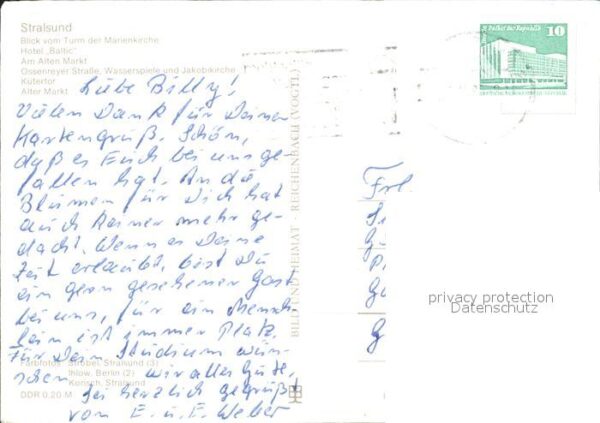 Stralsund
Blick vom Turm der Marienkirche
Hotel „Baltic"
Am Alten Markt
Ossenreyer Straße, Wasserspiele und Jakobikirche
Kütertor
Alter Markt
Liebe Billy!
Vielen Dank für Deinen
Kartengruß. Schön,
daß es Euch bei uns ge-
fallen hat. An die
Blumen für Dich hat
auch Rainer mehr ge-
dacht. Wenn es Deine
Zeit erlaubt, bist Du
ein gern gesehener Gast
bei uns, für ein Mensch-
lein ist immer Platz.
Für Dein Studium wün-
schen wir alles Gute,
Sei herzlich gegrüßt
von E. u. E. Weber
Farbfotos: Strobel, Stralsund (3)
Ihlow, Berlin (2)
Korsch, Stralsund
DDR 0,20 M
BILD UND HEIMAT · REICHENBACH (VOGTL)
Palast der Republik
10
Frl
privacy protection
Datenschutz